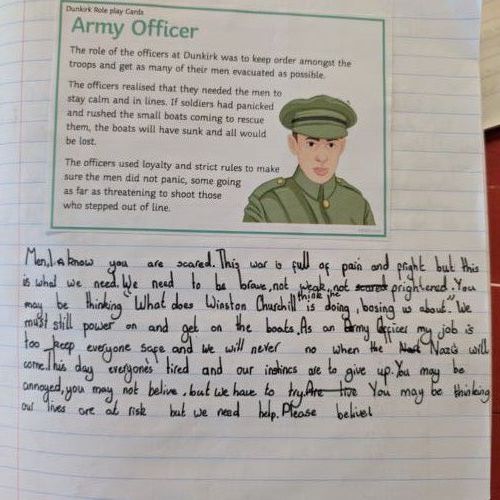 Dunkirk Role play Cards
Army Officer
The role of the officers at Dunkirk was to keep order amongst the
troops and get as many of their men evacuated as possible.
The officers realised that they needed the men to
stay calm and in lines. If soldiers had panicked
and rushed the small boats coming to rescue
them, the boats will have sunk and all would
be lost.
The officers used loyalty and strict rules to make
sure the men did not panic, some going
as far as threatening to shoot those
who stepped out of line.
Men, I know you are scared. This war is full of pain and fright but this
is what we need. We need to be brave, not weak, not scared frightened. You
may be thinking "What does Winston Churchill think he is doing, bosing us about". We
must still power on and get on the boats. As an Army Officer my job is
too keep everyone safe and we will never no when the Nazis will
come. This day everyone's tired and our instincs are to give up. You may be
annoyed, you may not belive, but we have to try. Are live You may be thinking
our lives are at risk but we need help. Please belive!